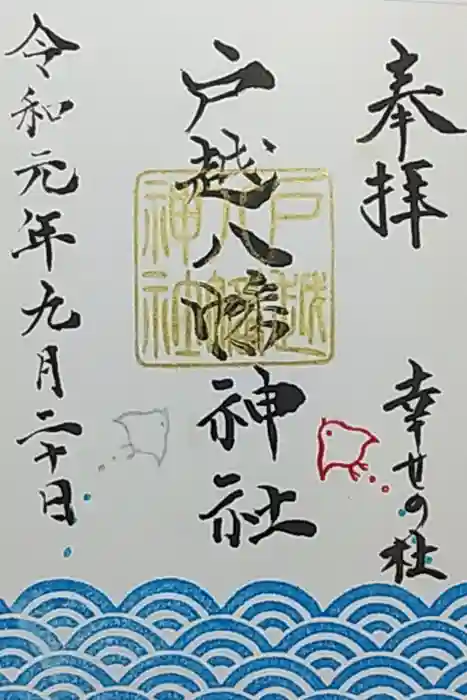 奉拝
幸せの杜
戸越八幡神社
戸越八幡神社
令和元年九月二十日